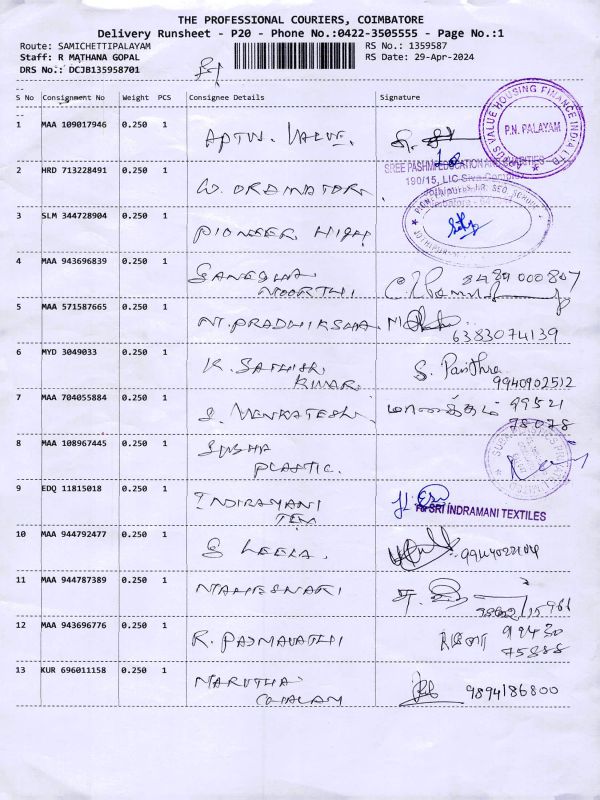 THE PROFESSIONAL COURIERS, COIMBATORE
Delivery Runsheet - P20 - Phone No.:0422-3505555 - Page No.:1
Route: SAMICHETTIPALAYAM RS No.: 1359587
Staff: R MATHANA GOPAL RS Date: 29-Apr-2024
DRS No.: DCJB135958701
S No Consignment No Weight PCS Consignee Details Signature
1 MAA 109017946 0.250 1 APTUS VALUE.
P.N. PALAYAM
VALUE HOUSING FINANCE INDIA LTD
SREE PASHMI EDUCATION AND CHARITIES
190/15, LIC
2 HRD 713228491 0.250 1
3 SLM 344728904 0.250 1 PIONEER HIGH
4 MAA 943696839 0.250 1 GANESHA
MOORTHI
5 MAA 571587665 0.250 1 NT. PRADHIKSHA
6383074139
6 MYD 3049033 0.250 1 K. SATHISH
KUMAR
9940902512
7 MAA 704055884 0.250 1 S. VENKATESH 99521
78078
8 MAA 108967445 0.250 1 SUBHA
PLASTIC.
9 EDQ 11815018 0.250 1 INDIRAMANI
TEX
For SRI INDRAMANI TEXTILES
10 MAA 944792477 0.250 1 S LEELA.
11 MAA 944787389 0.250 1 MAHESWARI
12 MAA 943696776 0.250 1 R. PADMAVATHI 99430
75888
13 KUR 696011158 0.250 1 MARUTHA
9894186800